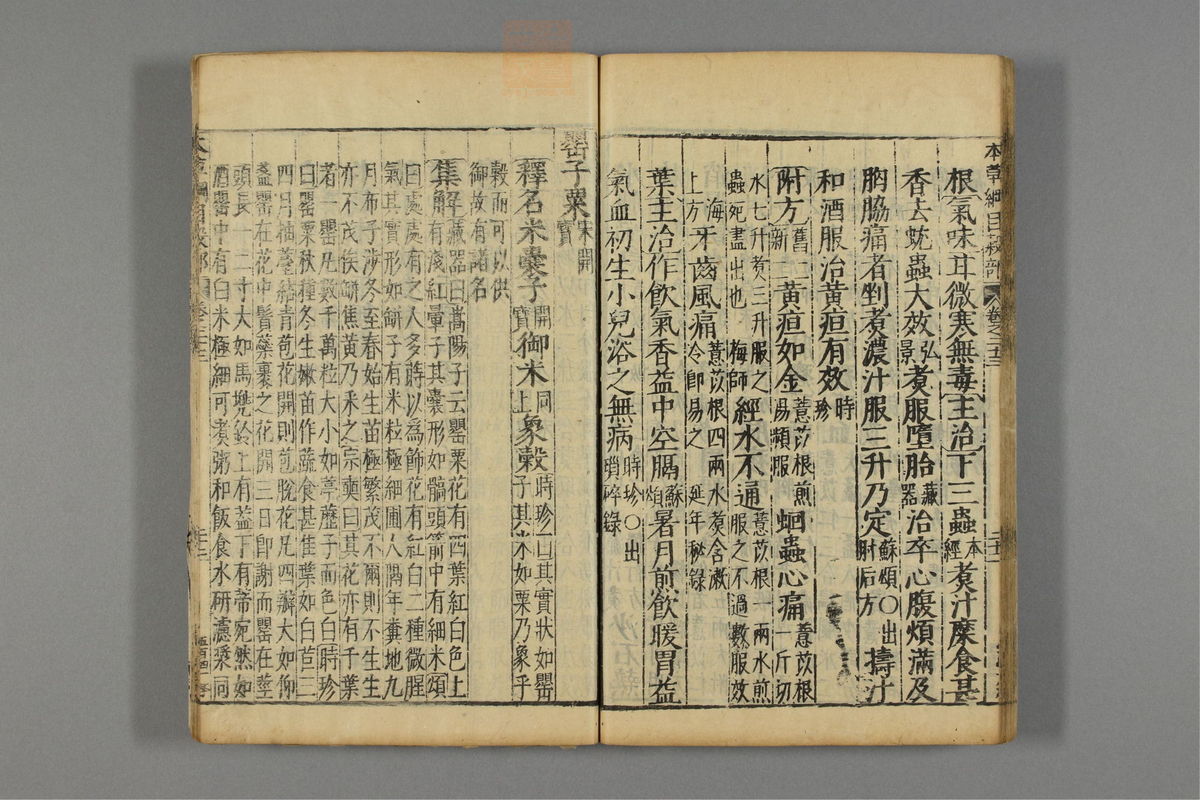 本草綱目穀部 卷之二十三
根氣味甘微寒無毒主治下三蟲本經煮汁糜食甚
香去蚘蟲大效弘景煮服墮胎藏器治卒心腹煩滿及
胸脇痛者剉煮濃汁服三升乃定蘇頌○出肘后方擣汁
和酒服治黃疸有效時珍
附方舊二新黃疸如金薏苡根煎湯頻服蛔蟲心痛薏苡根一斤切
水七升煮三升服之蟲死盡出也梅師經水不通薏苡根一兩水煎服之不過數服效
海上方牙齒風痛薏苡根四兩水煮含漱冷即易之延年秘錄
葉主治作飲氣香益中空膈蘇頌暑月煎飲暖胃益
氣血初生小兒浴之無病時珍○出瑣碎錄
罌子粟宋開寶
釋名米囊子開寶御米同上象穀時珍曰其實狀如罌子其米如粟乃象乎
穀而可以供御故有諸名
集解藏器曰嵩陽子云罌粟花有四葉紅白色上
有淺紅暈子其囊形如髇頭箭中有細米頌
曰處處有之人多蒔以為飾花有紅白二種微腥
氣其實形如缾子有米粒極細圃人隔年糞地九
月布子涉冬至春始生苗極繁茂不爾則不生生
亦不茂俟缾焦黃乃釆之宗奭曰其花亦有千葉
者一罌凡數千萬粒大小如葶藶子而色白時珍
曰罌粟秋種冬生嫩苗作蔬食甚佳葉如白苣三
四月抽薹結青苞花開則苞脫花凡四瓣大如仰
盞罌在花中鬚蘂裹之花開三日即謝而罌在莖
頭長一二寸大如馬兜鈴上有蓋下有蒂宛然如
酒罌中有白米極細可煮粥和飯食水研濾漿同